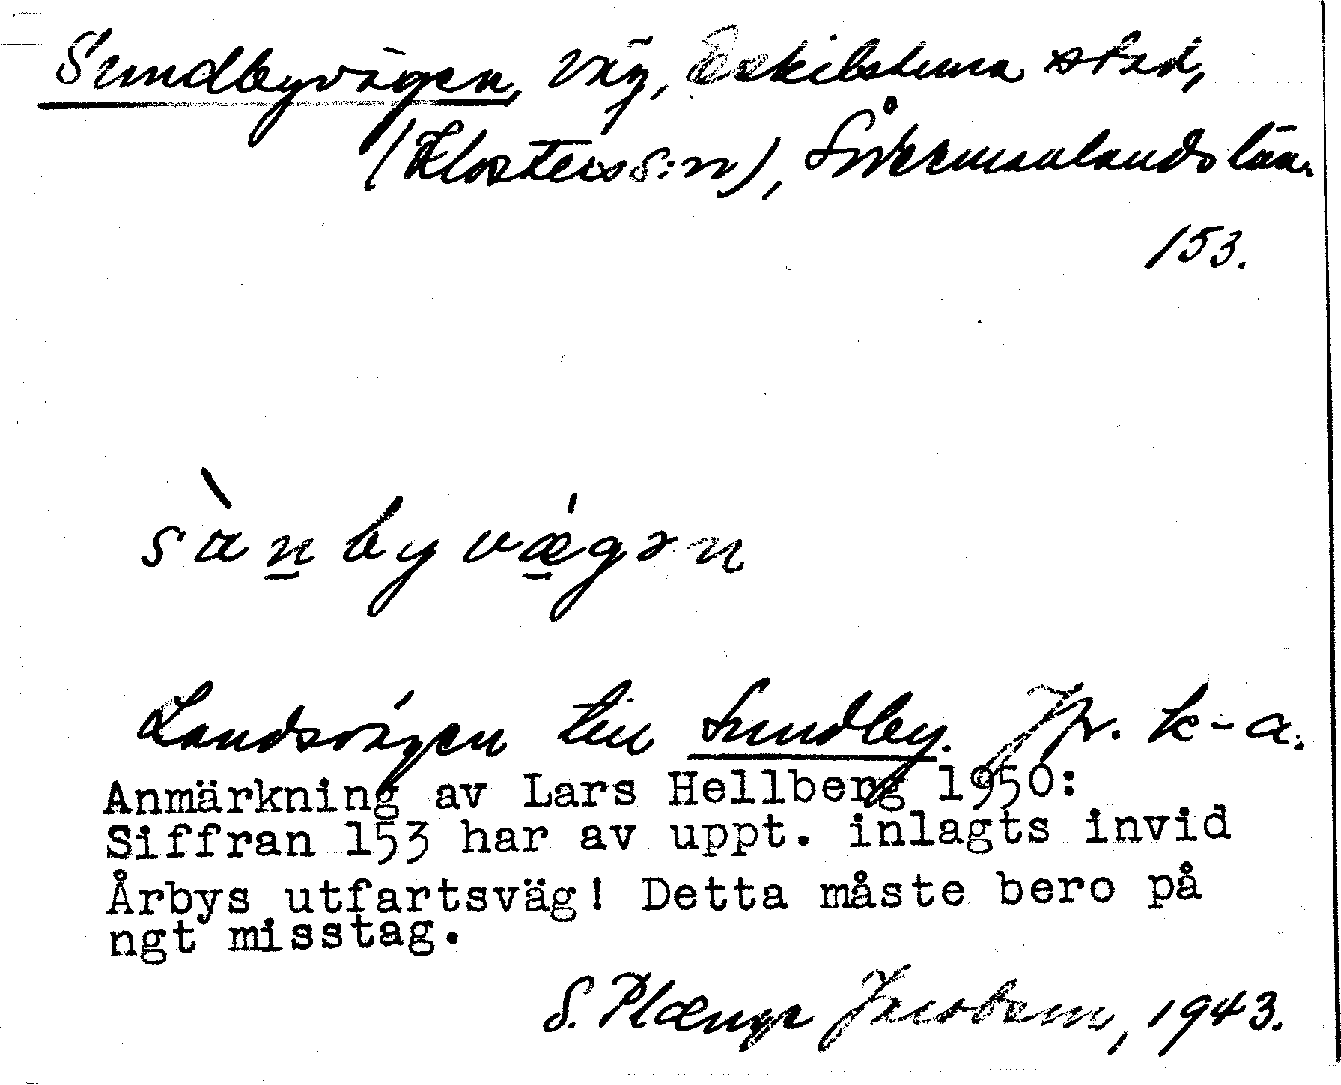 Sundbyvägen, väg, Eskilstuna stad,
(Klosters s:n), Södermanlands län.
153.
sànbyvǽgən
Landsvägen till Sundby. Jfr. k-a.
Anmärkning av Lars Hellberg 1950:
Siffran 153 har av uppt. inlagts invid
Årbys utfartsväg! Detta måste bero på
ngt misstag.
S. Plænge Jacobsen, 1943.